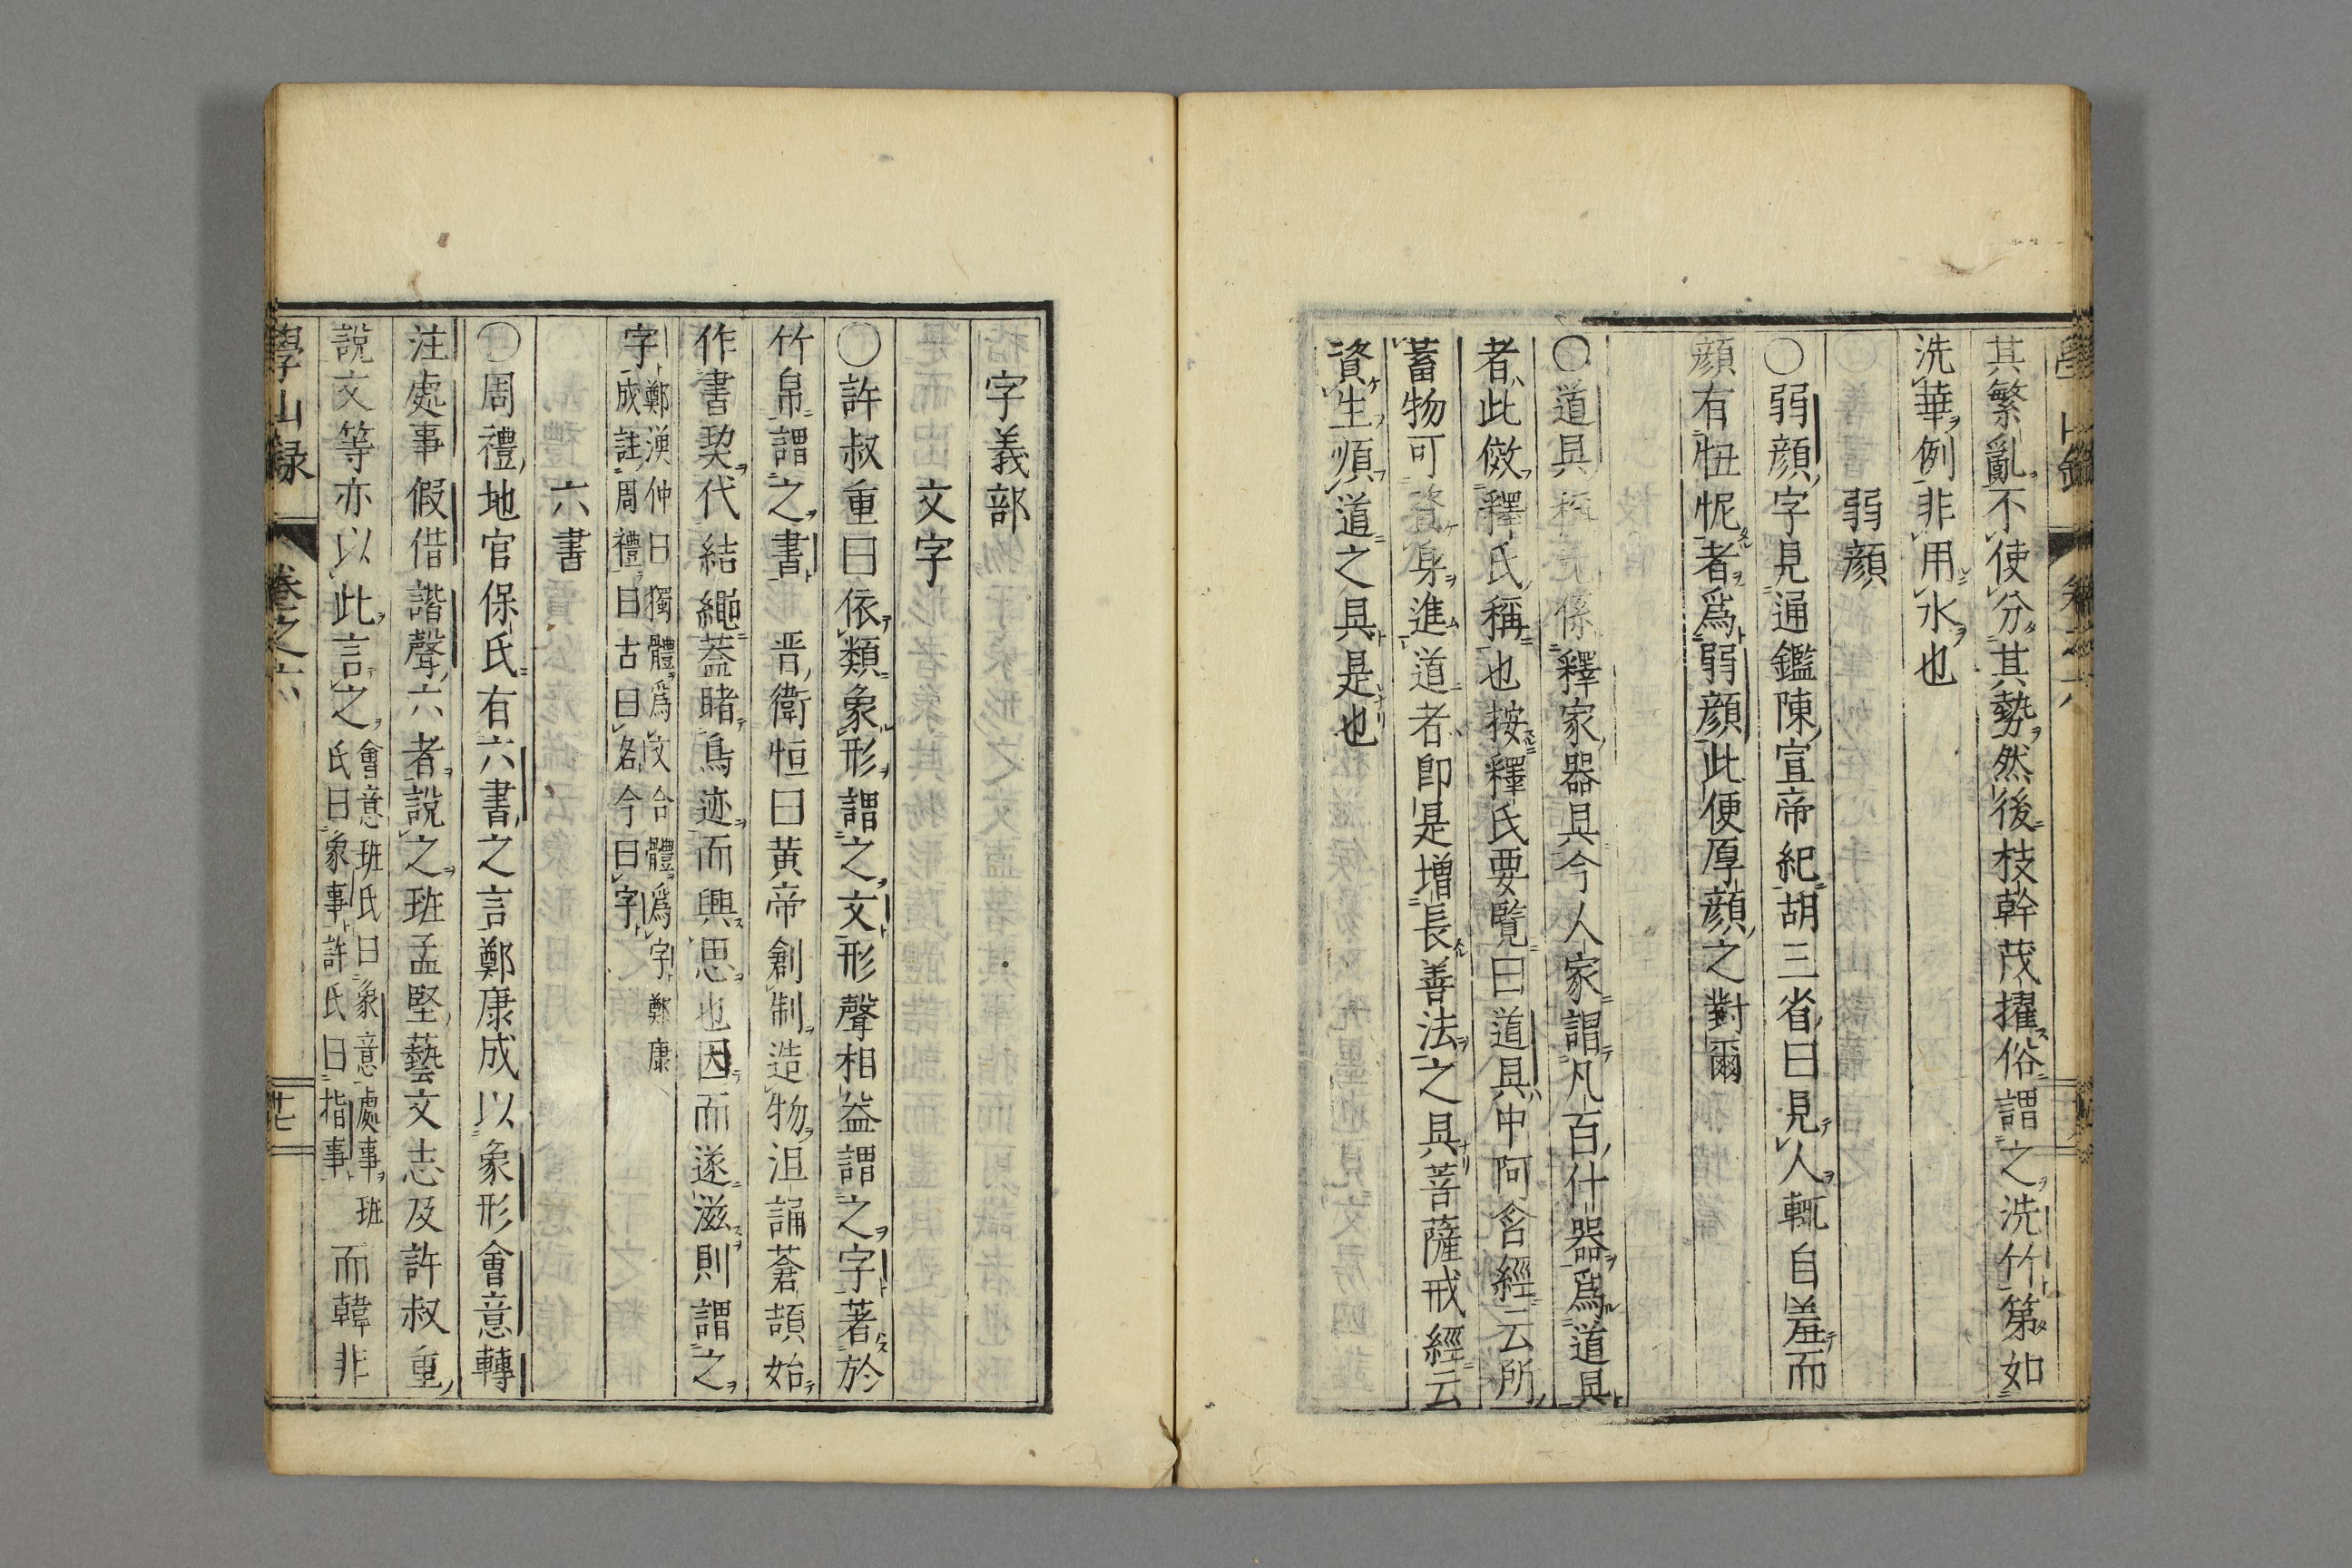 其繁亂不使分其勢然後枝幹茂擢俗謂之洗竹第如
洗華例非用水也
弱顔
〇弱顔字見通鑑陳宣帝紀胡三省曰見人輒自羞而
顔有忸怩者爲弱顔此便厚顔之對爾
〇道具稱元係釋家器具今人家謂凡百什器爲道具
者此傚釋氏稱也按釋氏要覽曰道具中阿含經云所
蓄物可資身進道者即是增長善法之具菩薩戒經云
資生順道之具是也
字義部
文字
〇許叔重曰依類象形謂之文形聲相益謂之字著於
竹帛謂之書 晋衛恒曰黄帝創制造物沮誦蒼頡始
作書契代結繩蓋睹鳥迹而興思也因而遂滋則謂之
字鄭漁仲曰獨體爲文合體爲字鄭康
成註周禮曰古曰名今曰字
六書
〇周禮地官保氏有六書之言鄭康成以象形會意轉
注處事假借諧聲六者説之班孟堅藝文志及許叔重
説文等亦以此言之會意班氏曰象意處事班
氏曰象事許氏曰指事而韓非
學山録 卷之六 十七